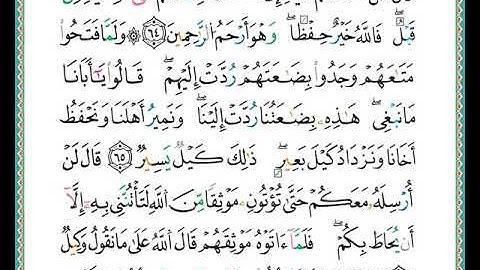 قَبْلُ ۖ فَاللَّهُ خَيْرٌ حِفْظًا ۖ وَهُوَ أَرْحَمُ الرَّٰحِمِينَ ٦٤ وَلَمَّا فَتَحُوا
مَتَٰعَهُمْ وَجَدُوا بِضَٰعَتَهُمْ رُدَّتْ إِلَيْهِمْ ۖ قَالُوا يَٰٓأَبَانَا
مَا نَبْغِي ۖ هَٰذِهِ بِضَٰعَتُنَا رُدَّتْ إِلَيْنَا ۖ وَنَمِيرُ أَهْلَنَا وَنَحْفَظُ
أَخَانَا وَنَزْدَادُ كَيْلَ بَعِيرٍ ۖ ذَٰلِكَ كَيْلٌ يَسِيرٌ ٦٥ قَالَ لَنْ
أُرْسِلَهُ مَعَكُمْ حَتَّىٰ تُؤْتُونِ مَوْثِقًا مِّنَ اللَّهِ لَتَأْتُنَّنِي بِهِ إِلَّآ
أَن يُحَاطَ بِكُمْ ۖ فَلَمَّآ ءَاتَوْهُ مَوْثِقَهُمْ قَالَ اللَّهُ عَلَىٰ مَا نَقُولُ وَكِيلٌ